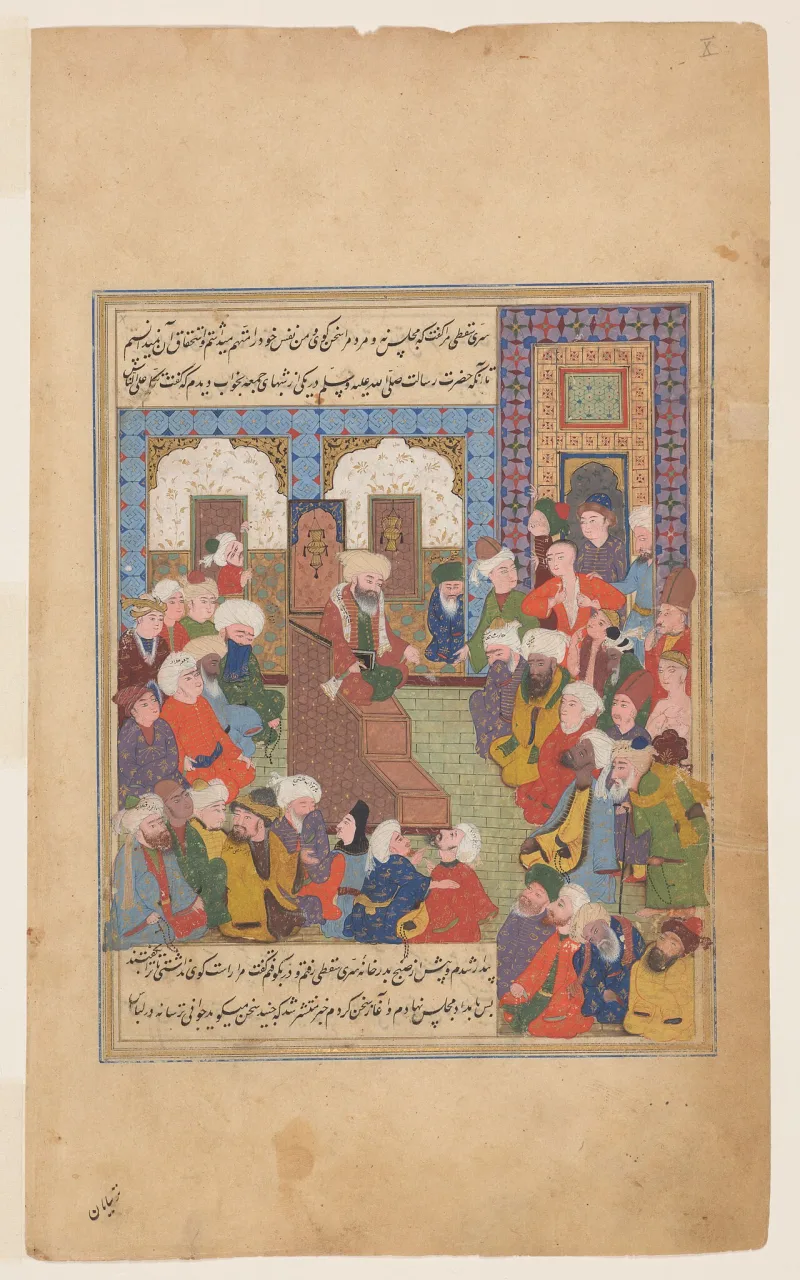 سری سقطی مرا گفت که مجلس نه و مردم را سخن کوی و من نفس خود را متهم میداشتم و استحقاق آن نمیدانستم
تا آنکه حضرت رسالت صلی الله علیه و سلم در یکی از شبهای جمعه بخواب دیدم که گفت تکلم علی الناس
بیدار شدم و پیش از صبح بدر خانه سری سقطی رفتم و در بکوفتم گفت مرا راست کوی نداشتی تا ترا نگفتند
پس بامداد مجلس نهادم و آغاز سخن کردم خبر منتشر شد که جنید سخن میکوید جوانی ترسا نه در لباس
ترسایان
X